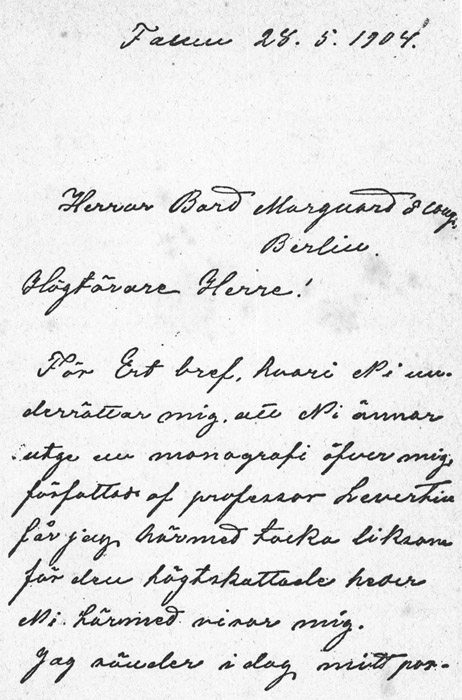 Falun 28. 5. 1904.
Herrar Bard Marquard & Comp.
Berlin
Högtärade Herre!
För Ert bref, hvari Ni un-
derrättar mig, att Ni ämnar
utge en monografi öfver mig,
författad af professor Levertin
får jag härmed tacka liksom
för den högtskattade heder
Ni härmed visar mig.
Jag sänder i dag mitt por-